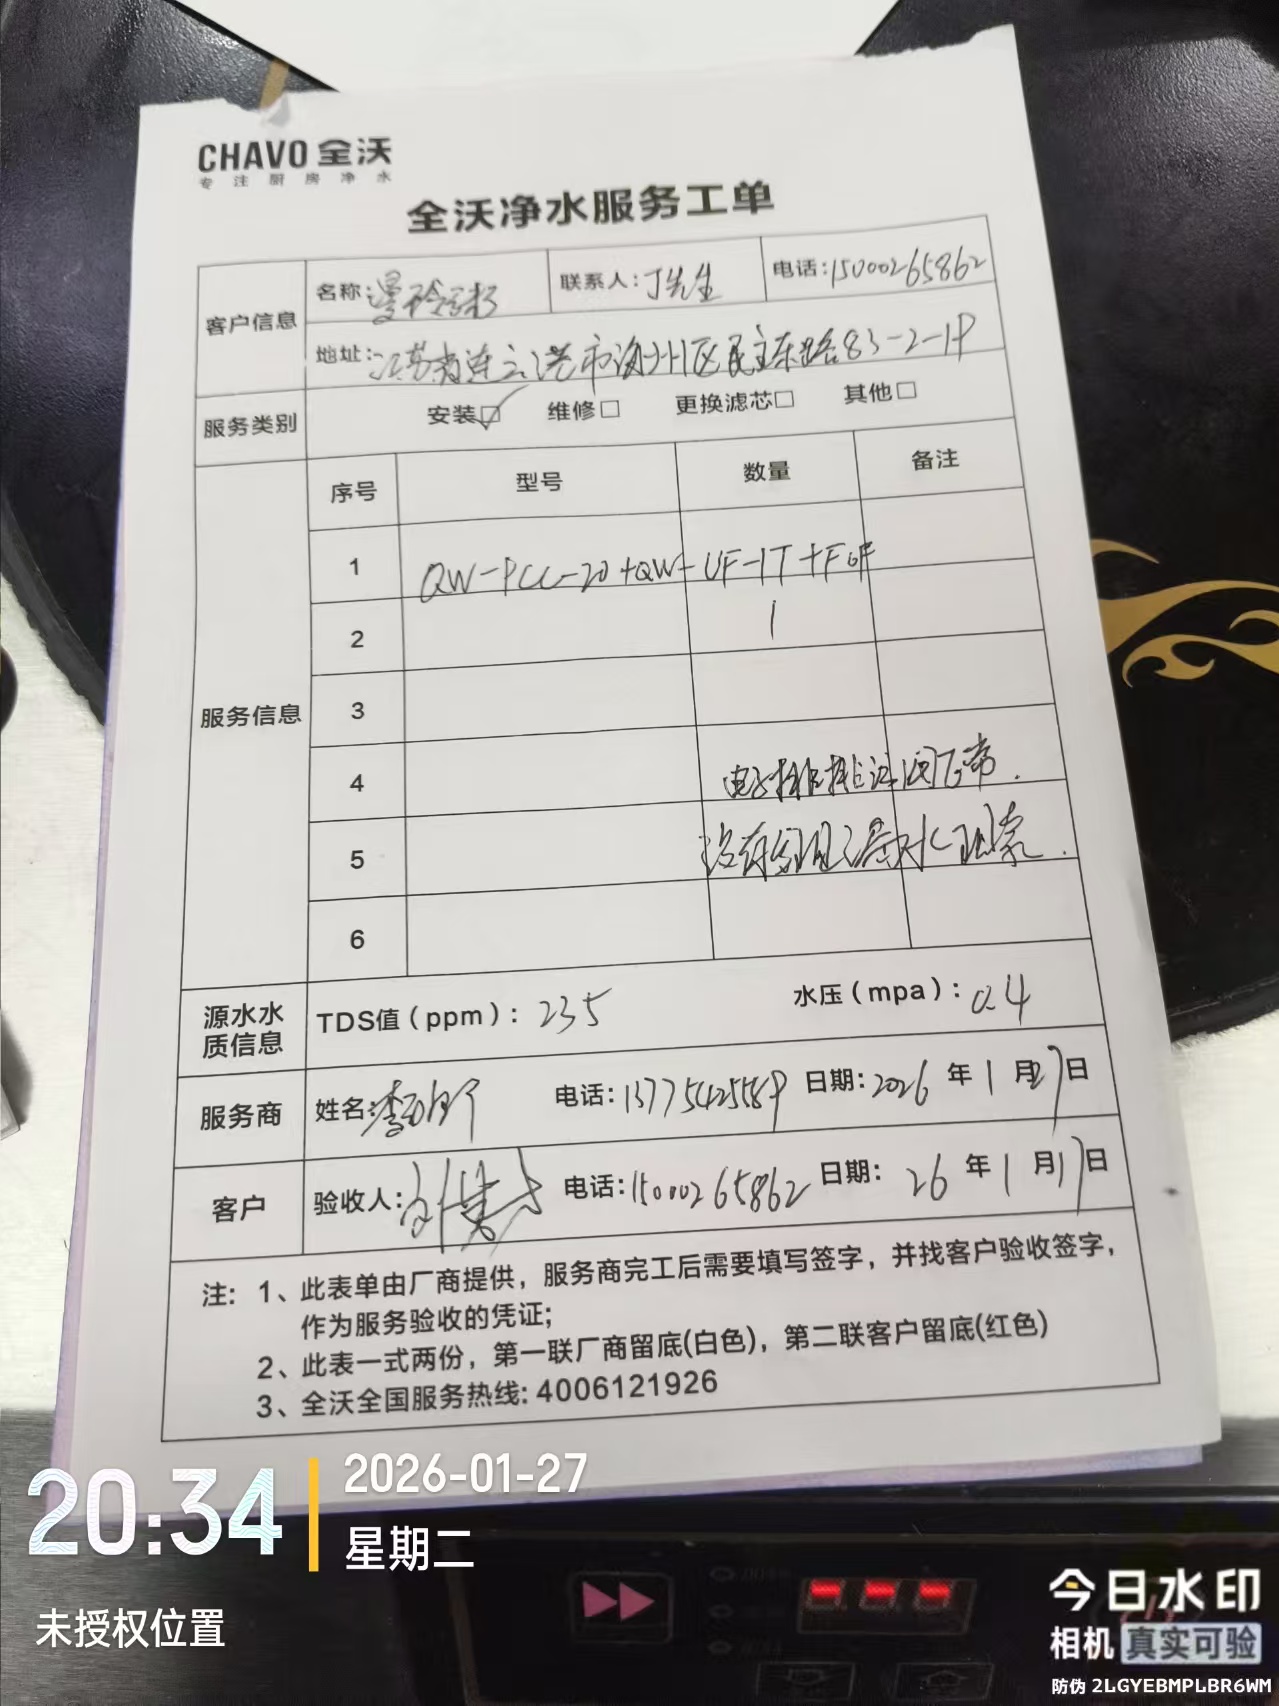 CHAVO 全沃
专注厨房净水
全沃净水服务工单
客户信息
名称：曼玲粥 联系人：丁先生 电话：15000265862
地址：江苏省连云港市海州区民主东路83-2-1户
服务类别 安装☑ 维修□ 更换滤芯□ 其他□
服务信息
序号 型号 数量 备注
1 QW-PCC-20+QW-UF-1T+F
2 1
3
4 电子排 阀正常.
5 没有出现漏水现象.
6
源水水质信息 TDS值（ppm）：235 水压（mpa）：0.4
服务商 姓名：李 电话：13775425589 日期：2026年1月27日
客户 验收人： 电话：15000265862 日期：26年1月17日
注：1、此表单由厂商提供，服务商完工后需要填写签字，并找客户验收签字，
作为服务验收的凭证；
2、此表一式两份，第一联厂商留底(白色)，第二联客户留底(红色)
3、全沃全国服务热线：4006121926
20:34
2026-01-27
星期二
未授权位置
今日水印
相机 真实可验
防伪 2LGYEBMPLBR6WM